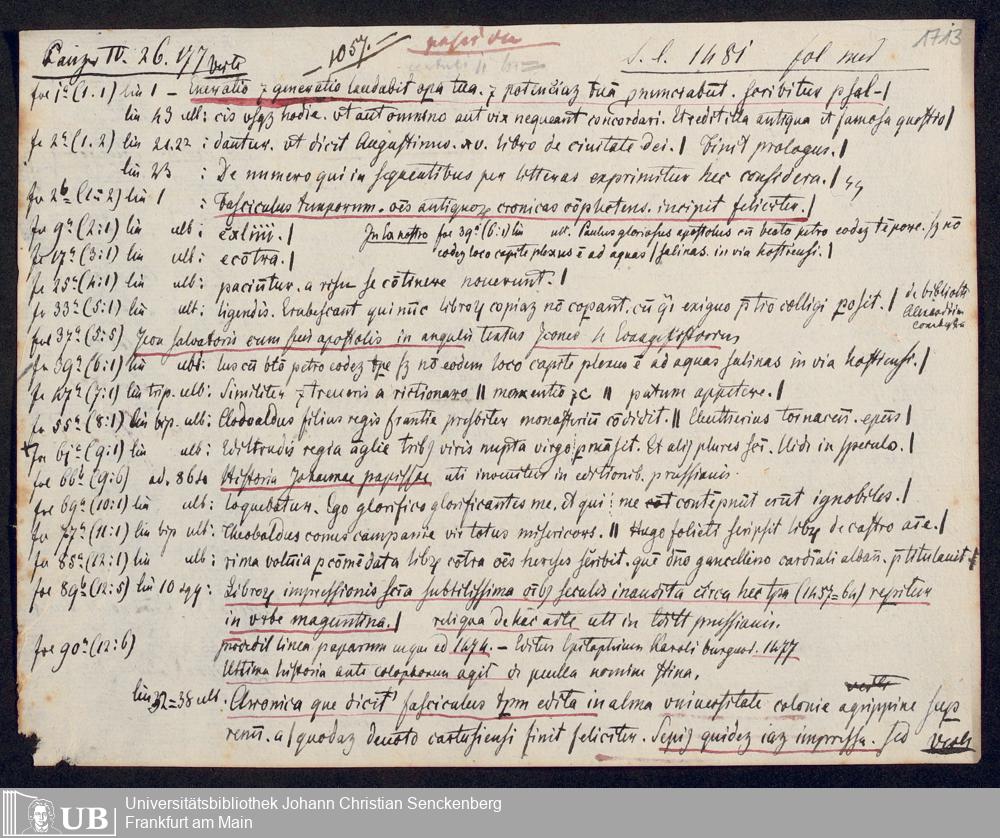 Panzer IV. 26. 177 verte 1057. S. l. 1481 fol med 1713
fre 1a (1.1) lin 1 - Eneratio z generatio laudabit opa tua. z potenciaz tuā pnunciabūt. Scribitur psal-/
lin 43 ult: cis vsqz hodie. vt aut omnino aut vix nequeant concordari. Et redit illa antiqua et famosa questio/
fe 2a (1.2) lin 21.22 : dantur. vt dicit Augustinus. xv. libro de ciuitate dei./ Finit prologus./
lin 23 : De numero qui in sequentibus per litteras exprimitur hec considera./ 44
fre 2b (1=2) lin 1 : Fasciculus temporum. oēs antiquoꝝ cronicas cōplectens. incipit feliciter./
fre 9a (2:1) lin ult: cxliii./ In Ex nostro fre 39a (6:1) lin ult. Paulus gloriosus apostolus cū beato petro eodez tēpore. sz nō
fe 17a (3:1) lin ult: ecōtra./ eodez loco capite plexus ē ad aquas/salinas. in via hostiensi./
fe 25a (4:1) lin ult: paciūtur. a risu se cōtinere nouerunt.
fe 33a (5:1) lin ult: ligendis. Erubescant qui nūc libroꝝ copiaz nō copant. cū exiguo colligi posit./ de biblioth Alexandrin
fol 37a (5:5) Icon Salvatoris cum apostolis in angulis textus Icones 4 Evangelistorum
fe 39a (6:1) lin ult: lus cū bto petro eodez tpe sz nō eodem loco capite plexus ē ad aquas salinas in via hostiensi./
fe 47a (7:1) lin trip. ult: Similiter z treueris a rictionaro || momentio zc || putum appetere./
fe 55a (8:1) lin trip. ult: Clodoaldus filius regis francie presbiter monasteriū cōdidit. || Eleutherius tornaceñ. epūs/
fre 61a (9:1) lin ult: Ediltrudis regia āglie tribꝫ viris nupta virgo pmāsit. Et alij plures sēi. Uide in speculo./
fre 66b (9:6) ad. 864 Historia Johannae papissae uti invenitur in editionib. prussianis
fre 69a (10:1) lin ult: loquebatur. Ego glorifico glorificantes me. Et qui me contēpnūt erūt ignobiles./
fe 77a (11:1) lin trip ult: Theobaldus comes campanie vir totus misericors. || Hugo folieti scripsit libꝝ de castro aīe./
fe 85a (12:1) lin ult: rima volūia pcōmēdata libꝝ cōtra oēs hereses scribit. quē dño gancellino cardinali albañ. ptitulauit
fre 89b (12:5) lin 10 sqq: Libroꝝ impressionis scīa subtilissima oībꝫ seculis inaudita circa hec tpa (1457=64) repitur
in vrbe maguntina./ reliqua de hac arte uti in edit prussianis.
fre 90a (12:6) procedit linea paparum usque ad 1474. - Editus Epitaphium Karoli burgund. 1477
Ultima historia ante colophonem agit de puella nomine Stina.
lin 32=38 ult. Chronica que dicit fasciculus tpm edita in alma vniuersitate colonie agrippine sup
renū. a/quodaz deuoto cartusiensi finit feliciter. Sepiꝫ quidez iaz impressa. sed verte
Universitätsbibliothek Johann Christian Senckenberg
Frankfurt am Main
UB